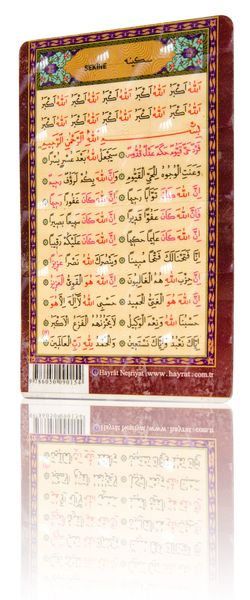 SEKİNE سكينه
اَللّٰهُ اَكْبَرُ اَللّٰهُ اَكْبَرُ اَللّٰهُ اَكْبَرُ اَللّٰهُ اَكْبَرُ اَللّٰهُ اَكْبَرُ
اَللّٰهُ اَكْبَرُ اَللّٰهُ اَكْبَرُ اَللّٰهُ اَكْبَرُ اَللّٰهُ اَكْبَرُ اَللّٰهُ اَكْبَرُ
بِسْمِ اللّٰهِ الرَّحْمٰنِ الرَّحِيمِ
فَرْدٌ حَىٌّ قَيُّومٌ حَكَمٌ عَدْلٌ قُدُّوسٌ سَيَجْعَلُ اللّٰهُ بَعْدَ عُسْرٍ يُسْرًا
وَعَنَتِ الْوُجُوهُ لِلْحَىِّ الْقَيُّومِ اِنَّ اللّٰهَ بِكُمْ لَرَؤُفٌ رَحِيمٌ
اِنَّ اللّٰهَ كَانَ تَوَّابًا رَحِيمًا اِنَّ اللّٰهَ كَانَ غَفُورًا رَحِيمًا
اِنَّ اللّٰهَ كَانَ عَفُوًّا قَدِيرًا اِنَّ اللّٰهَ كَانَ سَمِيعًا بَصِيرًا
اِنَّ اللّٰهَ كَانَ عَلِيمًا حَكِيمًا اِنَّ اللّٰهَ كَانَ عَلَيْكُمْ رَقِيبًا
اِنَّا فَتَحْنَا لَكَ فَتْحًا مُبِينًا وَيَنْصُرَكَ اللّٰهُ نَصْرًا عَزِيزًا
اِنَّ حِزْبَ اللّٰهِ هُمُ الْغَالِبُونَ اِنَّ اللّٰهَ هُوَ الْقَوِىُّ الْعَزِيزُ
اِنَّ اللّٰهَ هُوَ الْغَنِىُّ الْحَمِيدُ حَسْبِىَ اللّٰهُ لَا اِلٰهَ اِلَّا هُوَ
حَسْبُنَا اللّٰهُ وَنِعْمَ الْوَكِيلُ لَا يَحْزُنُهُمُ الْفَزَعُ الْاَكْبَرُ
اِيَّاكَ نَعْبُدُ وَاِيَّاكَ نَسْتَعِينُ وَالْحَمْدُ لِلّٰهِ رَبِّ الْعَالَمِينَ
Hayrât Neşriyat www.hayrat.com.tr
9786030090154